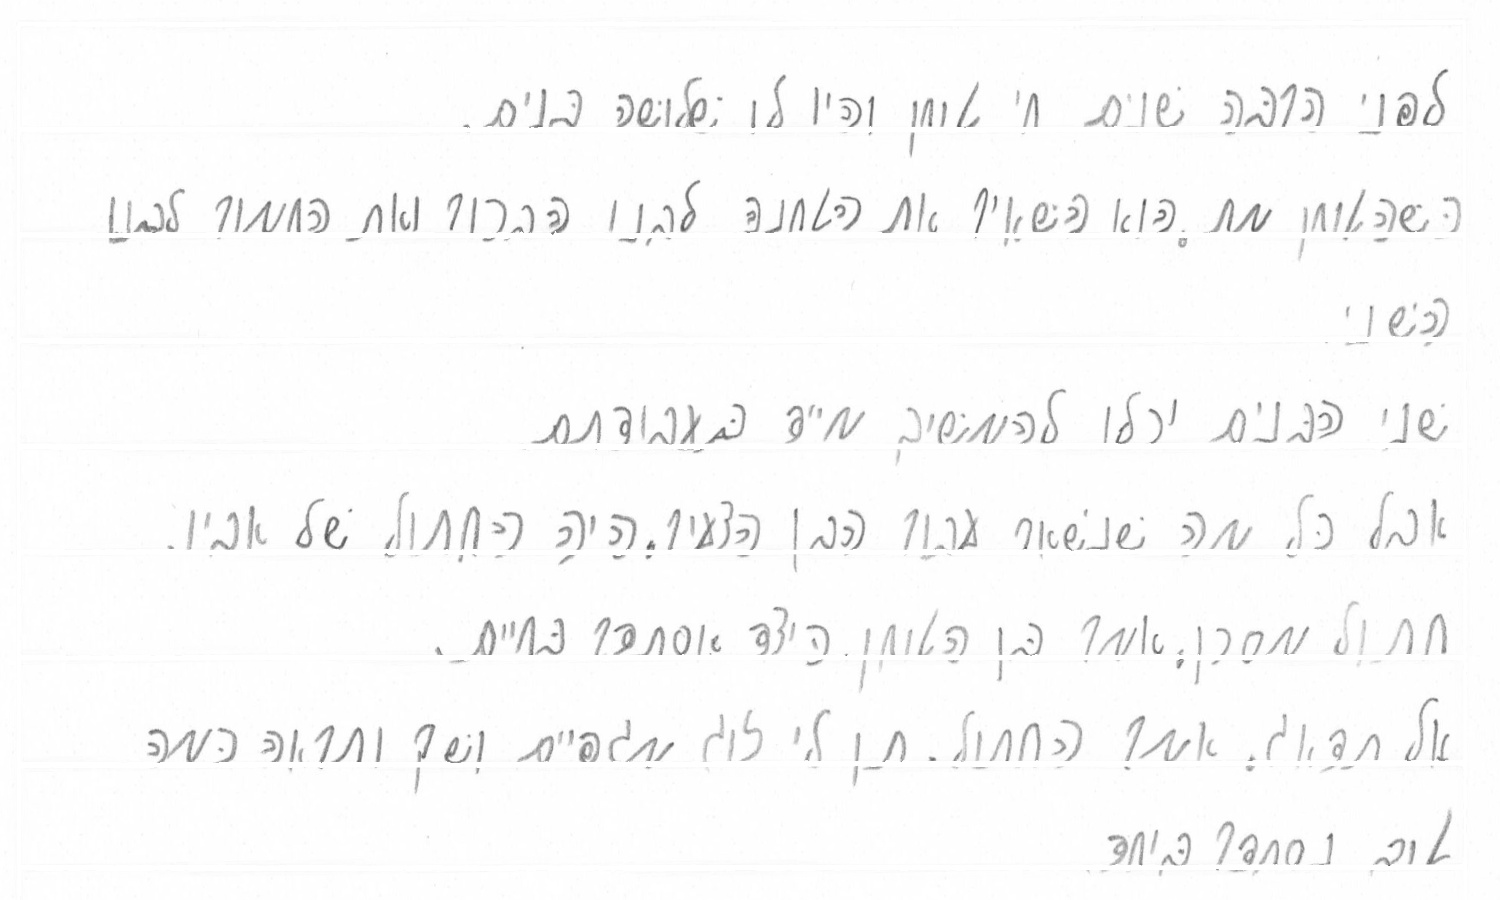 לפני הרבה שנים חי טוחן והיו לו שלושה בנים.
כשהטוחן מת, הוא השאיר את הטחנה לבנו הבכור ואת החמור לבנו
השני
שני הבנים יכלו להמשיך מייד בעבודתם
אבל כל מה שנשאר עבור הבן הצעיר, היה החתול של אביו.
חתול מסכן, אמר בן הטוחן. כיצד אסתדר בחיים.
אל תדאג, אמר החתול. תן לי זוג מגפיים ושק ותראה כמה
טוב נסתדר ביחד